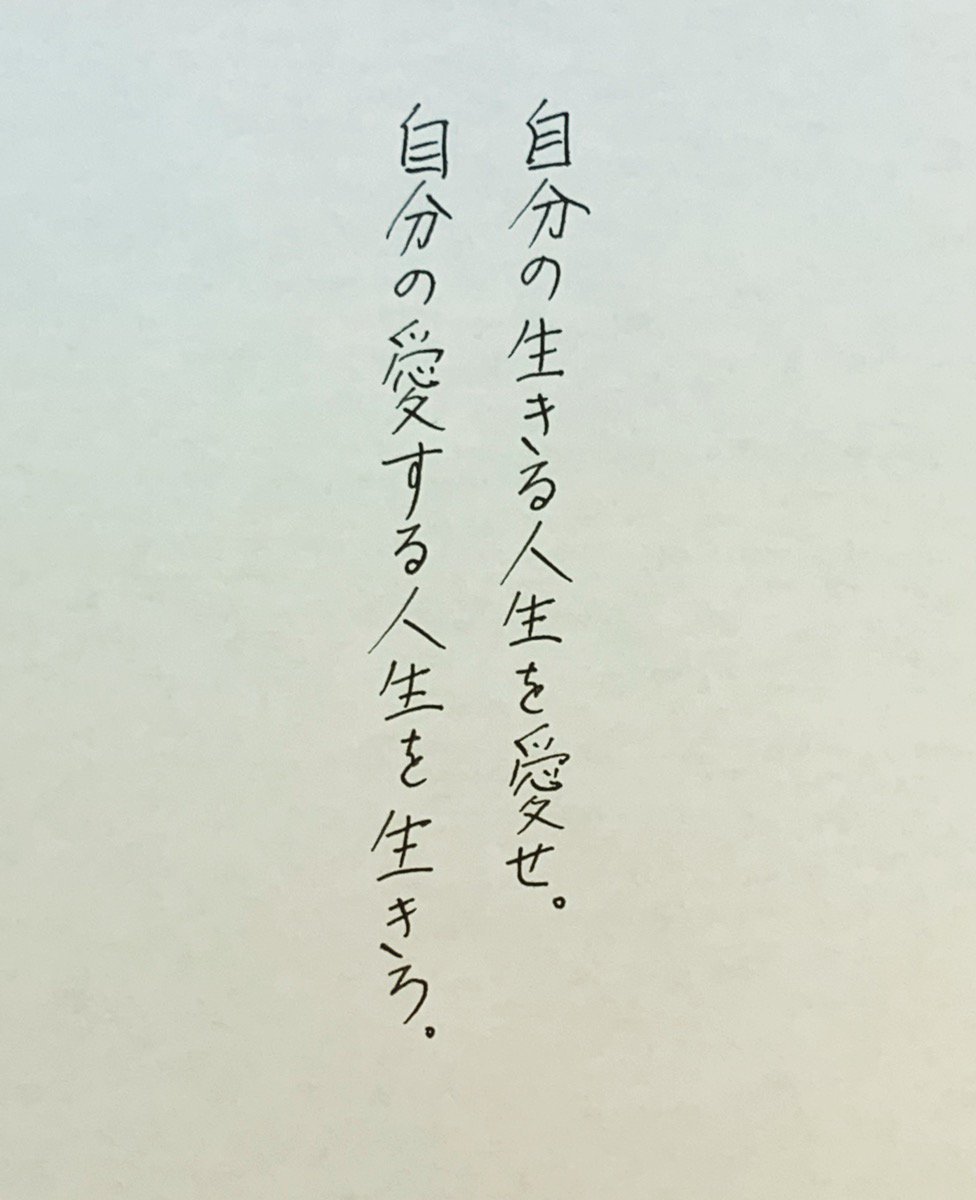 自分の生きる人生を愛せ。
自分の愛する人生を生きろ。